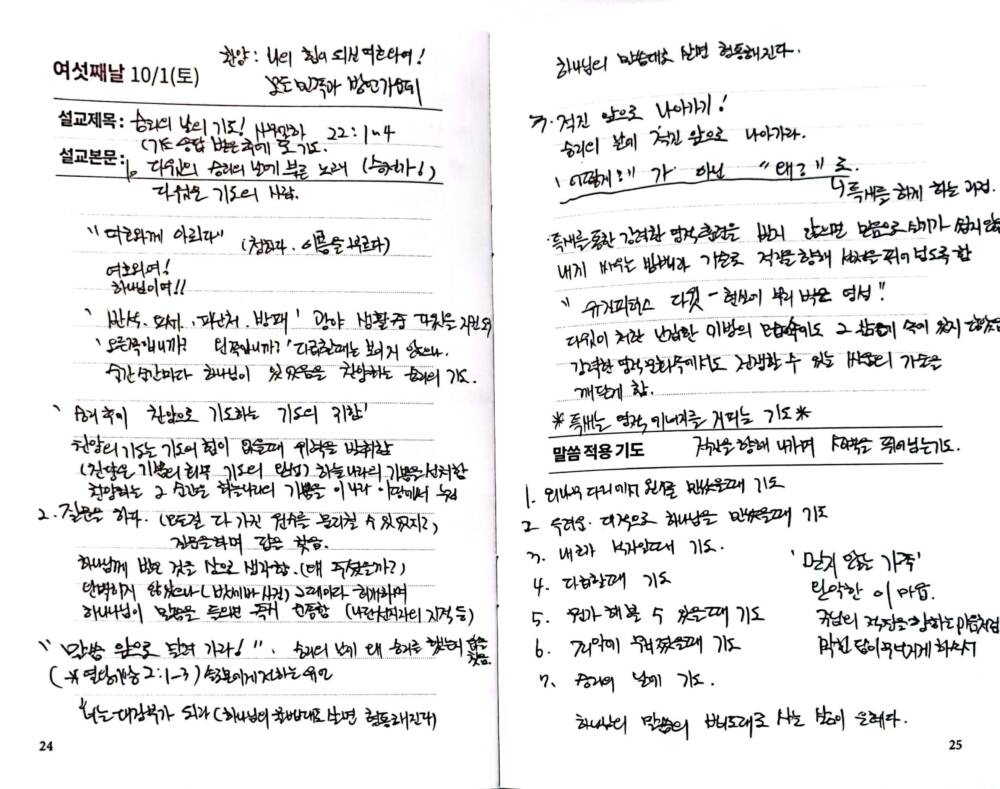 여섯째날 10/1(토)
찬양: 나의 힘이 되신 여호와여!
설교제목: 승리의 날의 기도! 사무엘하 22:1~4
(기도 응답 받은 후에 또 기도.
설교본문: 1. 다윗의 승리의 날에 부른 노래 (승전가!)
다윗은 기도의 사람.
"여호와께 아뢰다" (청하다. 이름을 부르다)
여호와여!
하나님이여!!
'반석. 요새. 피난처. 방패' 광야 생활중 다윗을
'오른쪽입니까? 왼쪽입니까?' 다급할때는 보이지 않으나.
순간순간마다 하나님이 있었음을 찬양하는 승리의 기도.
'승리 후에 찬양으로 기도하는 기도의 위함'
찬양의 기도는 기도의 힘이 없을때 위력을 발휘함
(찬양은 기쁨의 회복 기도의 완성) 하늘나라의 기쁨을 선취함
찬양하는 그 순간은 하늘나라의 기쁨을 이 나라 이 땅에서 누림
2. 질문을 하다. (모든걸 다 가진 원수를 물리칠 수 있었지?)
질문을하며 답을 찾음.
하나님께 받은 것을 산으로 생각함. (왜 주셨을까?)
완벽하지 않았으나 (밧세바 사건) 그때마다 회개하며
하나님이 말씀을 들으면 즉각 순종함 (나단선지자의 지적 등)
"말씀 앞으로 달려 가라!". 승리의 날에 왜 승리를 했는지 답을 찾음.
(※열왕기상 2:1-3) 솔로몬에게 전하는 유언
너는 대장부가 되라 (하나님의 율법대로 살면 형통해진다)
24
하나님의 말씀대로 살면 형통해진다.
3. 적진 앞으로 나아가기!
승리의 날에 적진 앞으로 나아가라.
'어떻게?' 가 아닌 "왜?" 로.
↳특새를 하게 하는 과정.
·특새를 통한 강력한 영적훈련을 받지 않으면 믿음으로 살기가 쉽지 않
내가 싸우는 방법과 기술로 적진을 향해 성벽을 뛰어 넘도록 함
"유진피터슨 다윗-현실에 뿌리 박은 영성"
다윗이 처한 난잡한 이방의 문화속에도 그 삶에 속해 있지
강력한 영적 문화속에서도 전쟁할 수 있는 싸움의 기술을
깨닫게 함.
※특새는 영적 에너지를 키우는 기도※
말씀 적용 기도 적진을 향해 나가며 성벽을 뛰어넘는기도.
1. 외나무 다리에서 원수를 만났을때 기도
2. 두려운 대적으로 하나님을 만났을때 기도
3. 내려가 보라알때 기도.
4. 다급할때 기도
5. 뭔가 해볼 수 있을때 기도
6. 죄악이 무거웠을때 기도
7. 승리의 날에 기도.
'믿지 않는 가족'
완악한 이 마음.
주님의 적진을 향하는 마음처럼
막힌 담이 무너지게 하소서
하나님의 말씀의 법도대로 사는 삶이 은혜다.
25